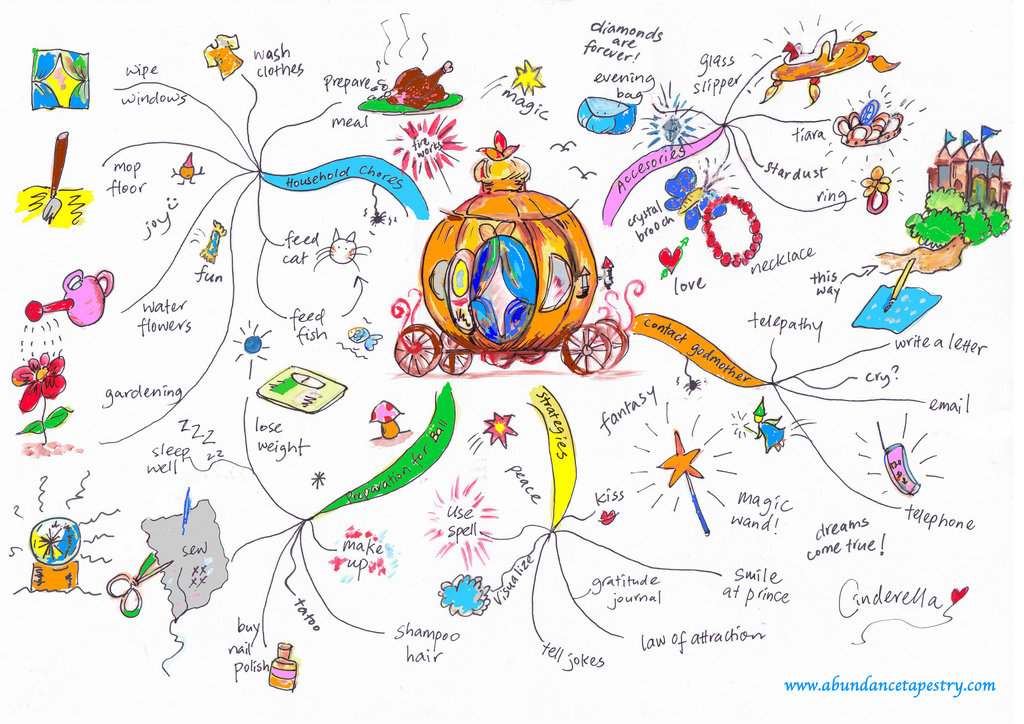 Household Chores
wipe
windows
wash
clothes
prepare
meal
mop
floor
joy
fun
water
flowers
gardening
feed
cat
feed
fish
magic
fire
works
diamonds
are
forever!
evening
bag
Accesories
glass
slipper
tiara
stardust
ring
crystal
brooch
necklace
love
this
way
Contact godmother
telepathy
write a letter
cry?
email
telephone
fantasy
magic
wand!
dreams
come true!
Strategies
peace
kiss
use
spell
visualize
smile
at prince
gratitude
journal
law of attraction
tell jokes
Preparation for Ball
lose
weight
zzz
zz
sleep
well
sew
xx
xx
make
up
tatoo
buy
nail
polish
shampoo
hair
Cinderella
www.abundancetapestry.com